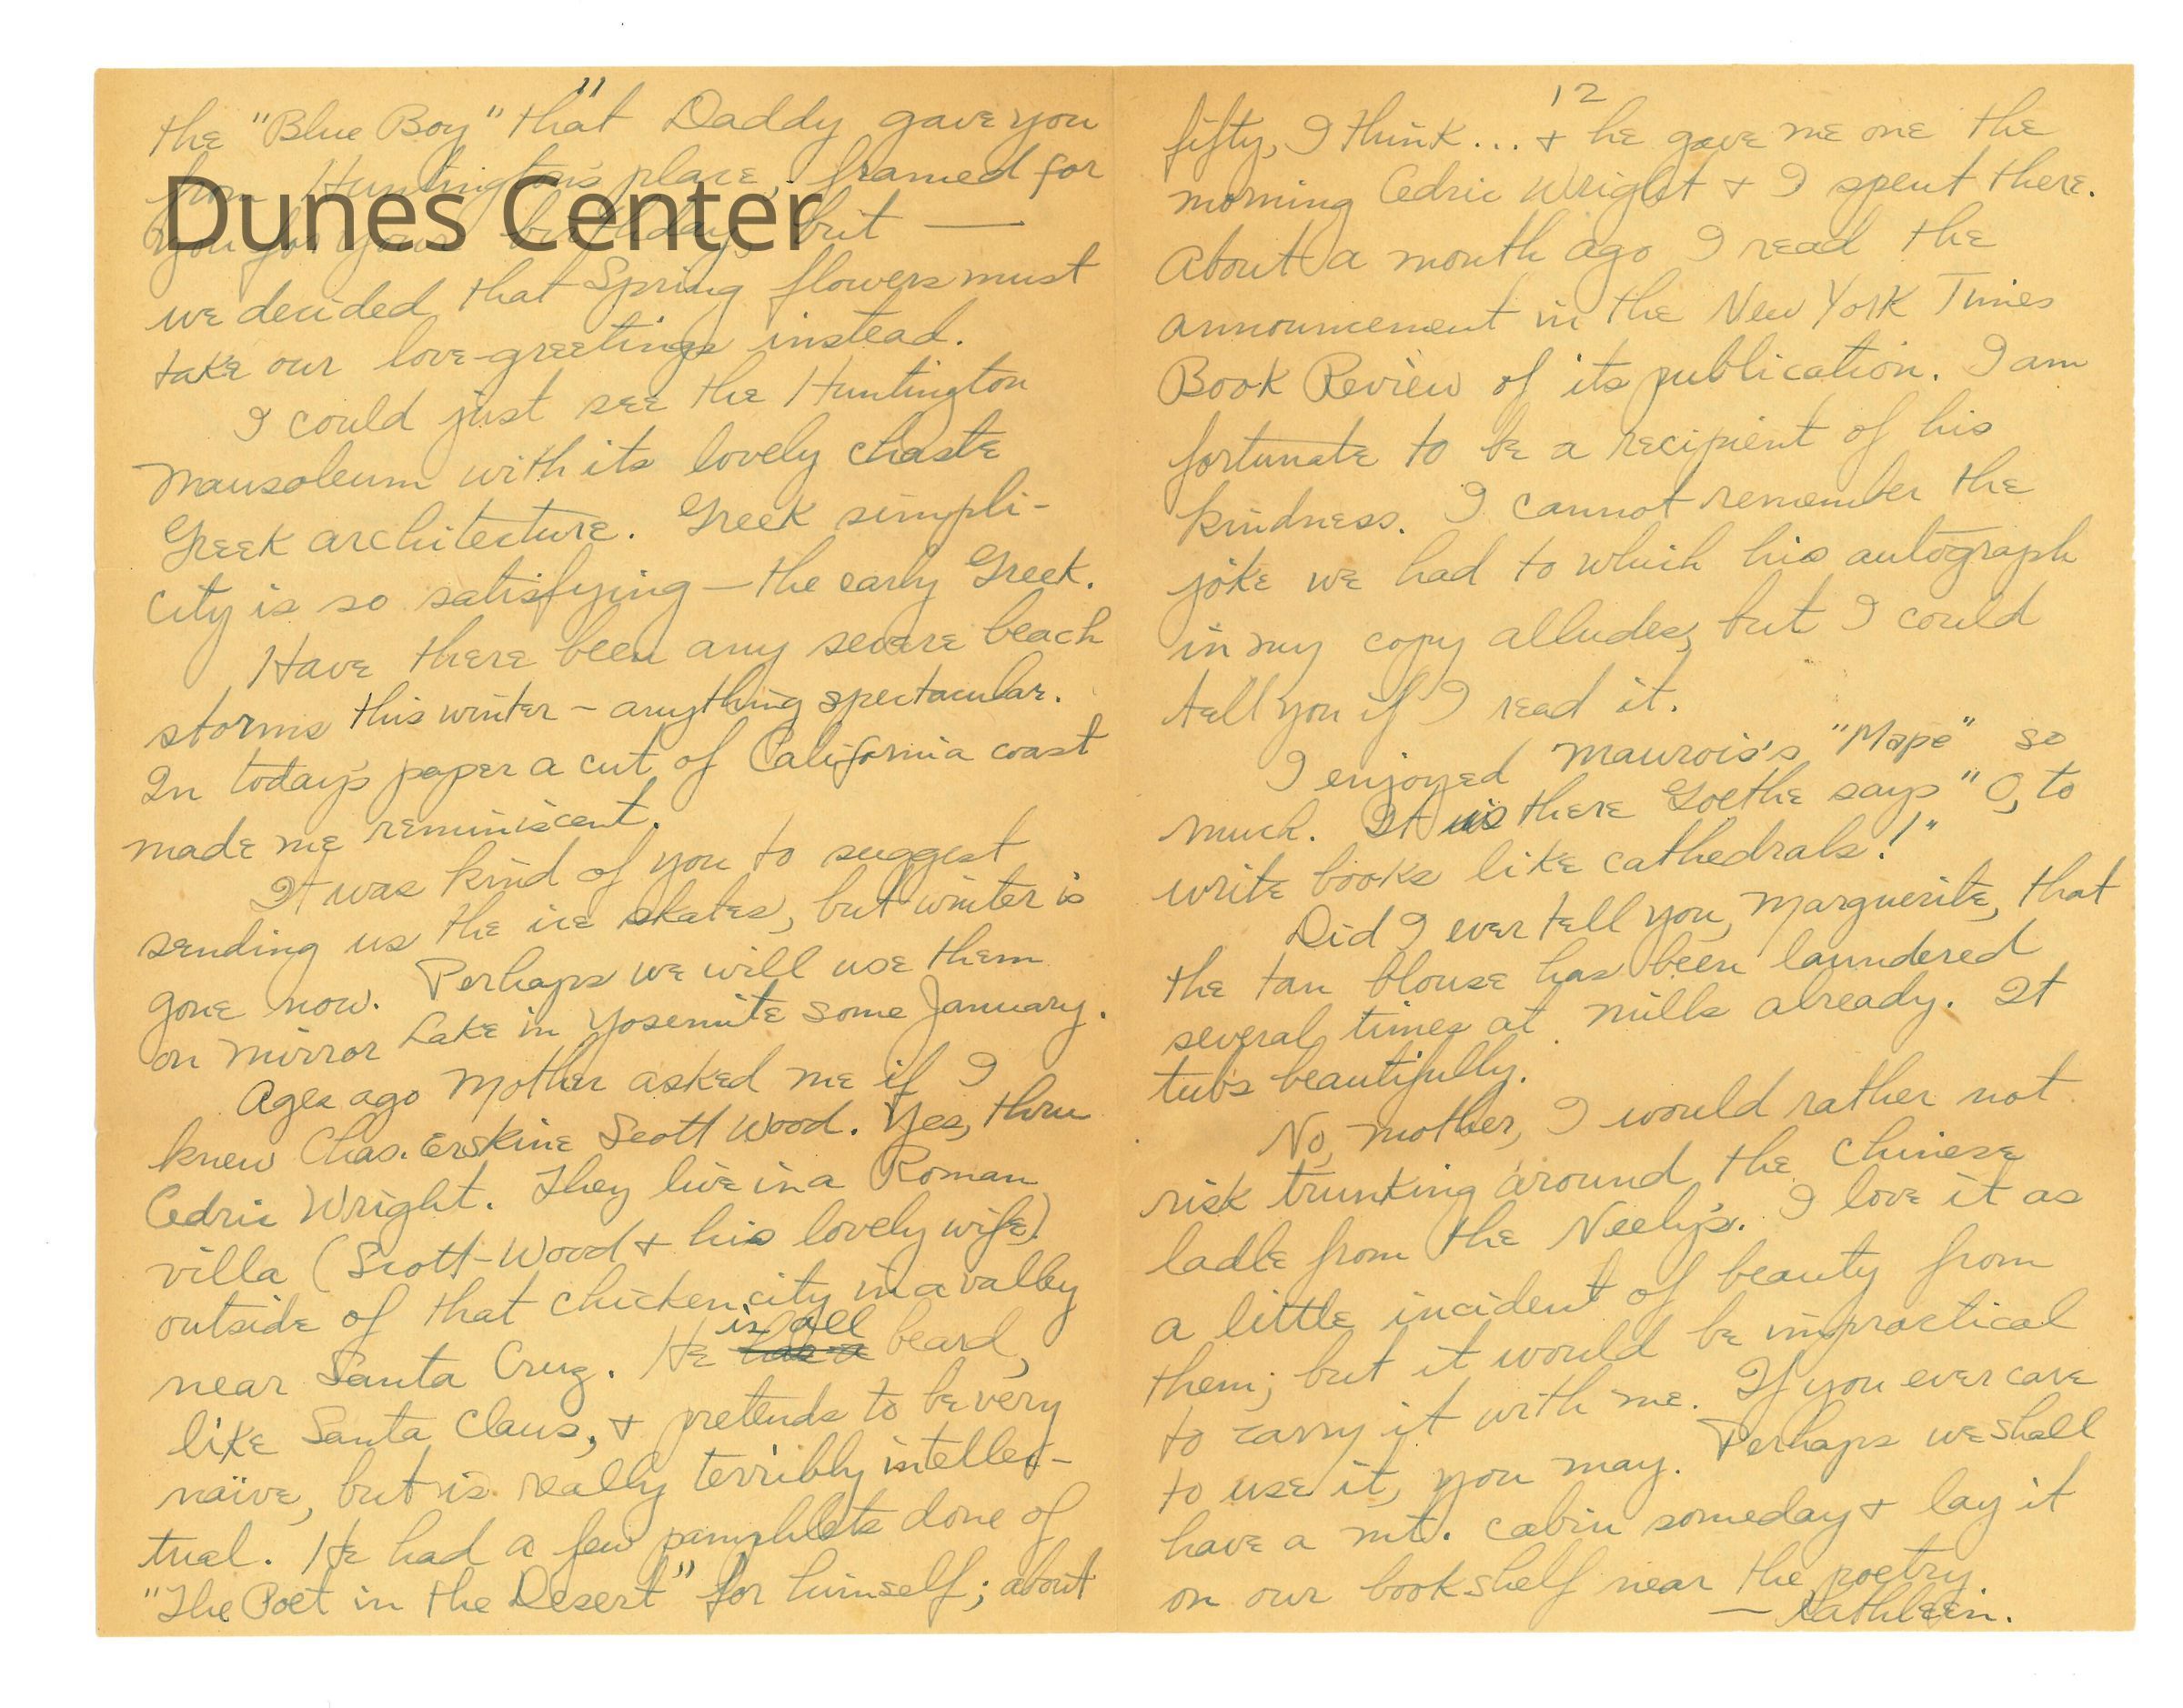 11
the "Blue Boy" that Daddy gave you
from Huntington's place, framed for
you for your birthday, but —
we decided that Spring flowers must
take our love-greetings instead.
I could just see the Huntington
Mausoleum with its lovely chaste
Greek architecture. Greek simpli-
city is so satisfying — the early Greek.
Have there been any severe beach
storms this winter – anything spectacular.
In today's paper a cut of California coast
made me reminiscent.
It was kind of you to suggest
sending us the ice skates, but winter is
gone now. Perhaps we will use them
on Mirror Lake in Yosemite some January.
Ages ago Mother asked me if I
knew Chas. Erskine Scott Wood. Yes, thru
Cedric Wright. They live in a Roman
villa (Scott-Wood + his lovely wife)
outside of that chicken city in a valley
near Santa Cruz. He is all beard,
like Santa Claus, + pretends to be very
naïve, but is really terribly intellec-
tual. He had a few pamphlets done of
"The Poet in the Desert" for himself; about
Dunes Center
12
fifty, I think... + he gave me one the
morning Cedric Wright + I spent there.
About a month ago I read the
announcement in the New York Times
Book Review of its publication. I am
fortunate to be a recipient of his
kindness. I cannot remember the
joke we had to which his autograph
in my copy alludes, but I could
tell you if I read it.
I enjoyed Maurois's "Mape" so
much. It is there Goethe says "O, to
write books like cathedrals!"
Did I ever tell you, Marguerite, that
the tan blouse has been laundered
several times at Mills already. It
tubs beautifully.
No, Mother, I would rather not
risk trunking around the Chinese
ladle from the Neely's. I love it as
a little incident of beauty from
them; but it would be impractical
to carry it with me. If you ever care
to use it, you may. Perhaps we shall
have a mt. cabin someday + lay it
on our bookshelf near the poetry
— Kathleen.